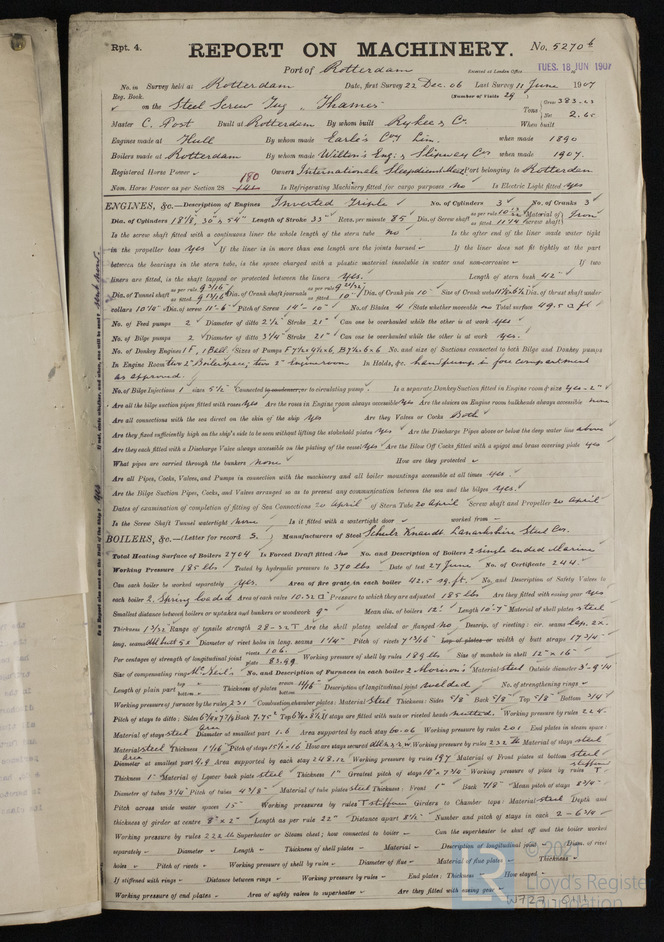 Rpt. 4.
REPORT ON MACHINERY. No. 5270b
Port of Rotterdam Received at London Office TUES. 18 JUN 1907
No. in Survey held at Rotterdam Date, first Survey 22 Dec. 06 Last Survey 11 June 1907
Reg. Book. (Number of Visits 29)
on the Steel Screw Tug Thames Tons Gross 383.
Net 2.60
Master C. Post Built at Rotterdam By whom built Rykee & Co. When built
Engines made at Hull By whom made Earle's Coy Lim. when made 1890
Boilers made at Rotterdam By whom made Wilton's Eng. & Slipway Co. when made 1907.
Registered Horse Power Owners Internationale Sleepdienst Port belonging to Rotterdam
180
Nom. Horse Power as per Section 28 Is Refrigerating Machinery fitted for cargo purposes No Is Electric Light fitted Yes
ENGINES, &c.—Description of Engines Inverted Triple No. of Cylinders 3 No. of Cranks 3
Dia. of Cylinders 18 1/8, 30 & 54" Length of Stroke 33" Revs. per minute 85 Dia. of Screw shaft as per rule as fitted Material of screw shaft Iron
Is the screw shaft fitted with a continuous liner the whole length of the stern tube no Is the after end of the liner made water tight
in the propeller boss yes If the liner is in more than one length are the joints burned If the liner does not fit tightly at the part
between the bearings in the stern tube, is the space charged with a plastic material insoluble in water and non-corrosive If two
liners are fitted, is the shaft lapped or protected between the liners Yes. Length of stern bush 42"
Dia. of Tunnel shaft as per rule 9 3/16" as fitted Dia. of Crank shaft journals as per rule 9 21/32" as fitted 10" Dia. of Crank pin 10" Size of Crank webs Dia. of thrust shaft under
collars 10 1/4" Dia. of screw 11'-6" Pitch of Screw 14'-10" No. of Blades 4 State whether moveable no Total surface 49.5 □ ft
No. of Feed pumps 2 Diameter of ditto 2 1/2" Stroke 21" Can one be overhauled while the other is at work yes
No. of Bilge pumps 2 Diameter of ditto 3 1/4" Stroke 21" Can one be overhauled while the other is at work yes.
No. of Donkey Engines 1 F, 1 Ball. Sizes of Pumps No. and size of Suctions connected to both Bilge and Donkey pumps
In Engine Room two 2" Boilerspace, two 2" Engineroom In Holds, &c. handpump in fore compartment
as approved.
No. of Bilge Injections 1 sizes 5 1/2" Connected to condenser, or to circulating pump Is a separate Donkey Suction fitted in Engine room & size Yes - 2"
Are all the bilge suction pipes fitted with roses Yes Are the roses in Engine room always accessible Yes Are the sluices on Engine room bulkheads always accessible none
Are all connections with the sea direct on the skin of the ship Yes Are they Valves or Cocks Both
Are they fixed sufficiently high on the ship's side to be seen without lifting the stokehold plates Yes Are the Discharge Pipes above or below the deep water line above
Are they each fitted with a Discharge Valve always accessible on the plating of the vessel Yes Are the Blow Off Cocks fitted with a spigot and brass covering plate yes
What pipes are carried through the bunkers none How are they protected
Are all Pipes, Cocks, Valves, and Pumps in connection with the machinery and all boiler mountings accessible at all times yes.
Are the Bilge Suction Pipes, Cocks, and Valves arranged so as to prevent any communication between the sea and the bilges yes.
Dates of examination of completion of fitting of Sea Connections 20 April of Stern Tube 20 April Screw shaft and Propeller 20 April
Is the Screw Shaft Tunnel watertight none Is it fitted with a watertight door worked from
BOILERS, &c.—(Letter for record S.) Manufacturers of Steel Schulz Knaudt Lanarkshire Steel Co.
Total Heating Surface of Boilers 2704 Is Forced Draft fitted no No. and Description of Boilers 2 single ended Marine
Working Pressure 185 lbs Tested by hydraulic pressure to 370 lbs Date of test 27 June No. of Certificate 244.
Can each boiler be worked separately Yes. Area of fire grate in each boiler 42.5 sq. ft. No. and Description of Safety Valves to
each boiler 2. Spring loaded Area of each valve 10.32 □" Pressure to which they are adjusted 185 lbs Are they fitted with easing gear Yes
Smallest distance between boilers or uptakes and bunkers or woodwork 9" Mean dia. of boilers 12' Length 10'-7" Material of shell plates steel
Thickness 1 3/32 Range of tensile strength 28-32 T Are the shell plates welded or flanged no Descrip. of riveting: cir. seams lap. 2x.
long. seams dbl butt 5x Diameter of rivet holes in long. seams 1 1/4" Pitch of rivets 7 13/16" Lap of plates or width of butt straps 17 3/4"
Per centages of strength of longitudinal joint rivets 106. plate 83.99 Working pressure of shell by rules 189 lbs Size of manhole in shell 12" x 16"
Size of compensating ring McNeil's No. and Description of Furnaces in each boiler 2 Morison's Material steel Outside diameter 3'-9 1/4
Length of plain part top bottom Thickness of plates crown bottom Description of longitudinal joint welded No. of strengthening rings
Working pressure of furnace by the rules 231 Combustion chamber plates: Material Steel Thickness: Sides 5/8" Back 5/8" Top 5/8" Bottom 3/4"
Pitch of stays to ditto: Sides Back Top If stays are fitted with nuts or riveted heads nutted. Working pressure by rules 224.
Material of stays steel Area Diameter at smallest part 1.6 Area supported by each stay 60.06 Working pressure by rules 201 End plates in steam space:
Material steel Thickness 1 1/16" Pitch of stays 15 1/2 x 16 How are stays secured Working pressure by rules 232 lb Material of stays steel
Area Diameter at smallest part 4.9 Area supported by each stay 248.12 Working pressure by rules 197 Material of Front plates at bottom steel
Thickness 1" Material of Lower back plate steel Thickness 1" Greatest pitch of stays Working pressure of plate by rules T stiffener
Diameter of tubes 3 1/4" Pitch of tubes 4 3/8" Material of tube plates steel Thickness: Front 1" Back 7/8" Mean pitch of stays 8 3/4"
Pitch across wide water spaces 15" Working pressures by rules T stiffener Girders to Chamber tops: Material steel Depth and
thickness of girder at centre 8" x 2" Length as per rule 22" Distance apart 8 1/2" Number and pitch of stays in each 2 - 6 3/4"
Working pressure by rules 222 lb Superheater or Steam chest; how connected to boiler Can the superheater be shut off and the boiler worked
separately Diameter Length Thickness of shell plates Material Description of longitudinal joint Diam. of rivet
holes Pitch of rivets Working pressure of shell by rules Diameter of flue Material of flue plates Thickness
If stiffened with rings Distance between rings Working pressure by rules End plates: Thickness How stayed
Working pressure of end plates Area of safety valves to superheater Are they fitted with easing gear
© 2021
Lloyd's Register
Foundation